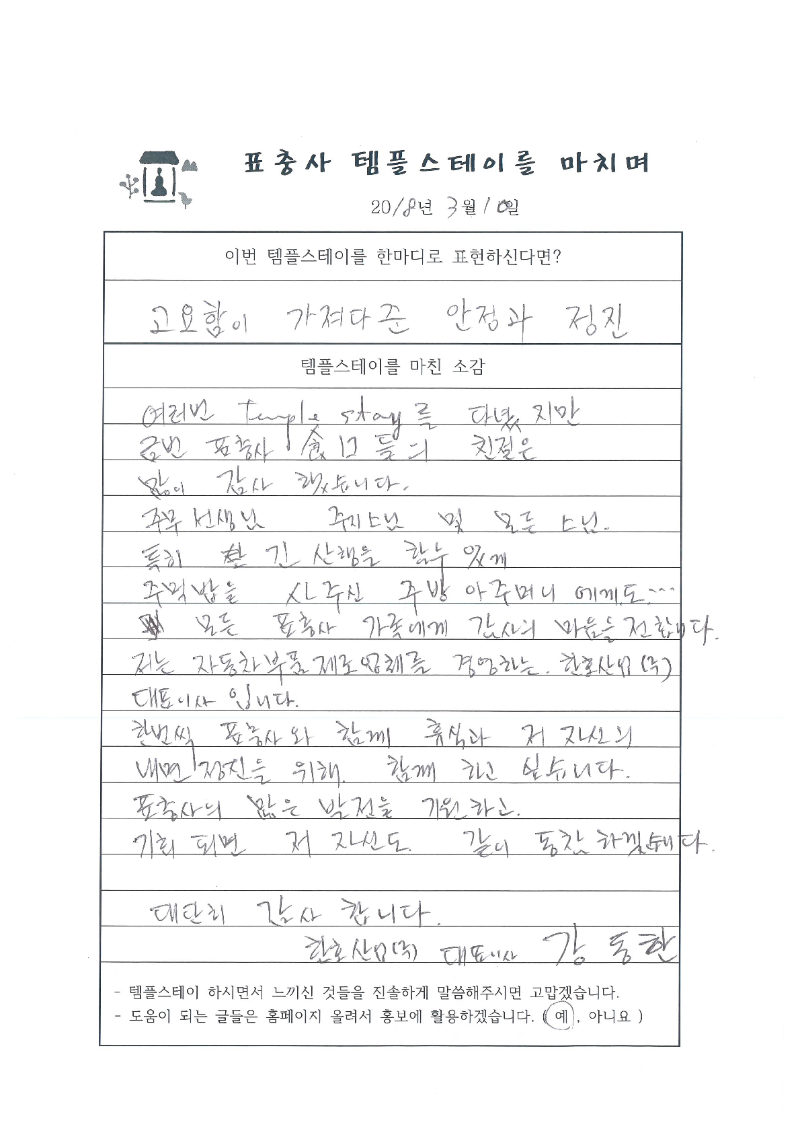 표충사 템플스테이를 마치며
2018년 3월 10일
이번 템플스테이를 한마디로 표현하신다면?
고요함이 가져다 준 안정과 정진
템플스테이를 마친 소감
여러번 temple stay를 다녔지만
금번 표충사 食口들의 친절은
많이 감사 했습니다.
주무 선생님 주지스님 및 모든 스님.
특히 긴 산행을 할수 있게
주먹밥을 싸주신 주방 아주머니 에게도...
모든 표충사 가족에게 감사의 마음을 전합니다.
저는 자동차부품제조업체를 경영하는. 한호산업(주)
대표이사 입니다.
한번씩 표충사와 함께 휴식과 저 자신의
내면 정진을 위해. 함께 하고 싶습니다.
표충사의 많은 발전을 기원하고.
기회 되면 저 자신도 같이 동참하겠습니다.
대단히 감사 합니다.
한호산업(주) 대표이사 강동한
- 템플스테이 하시면서 느끼신 것들을 진솔하게 말씀해주시면 고맙겠습니다.
- 도움이 되는 글들은 홈페이지 올려서 홍보에 활용하겠습니다. ( 예 , 아니요 )